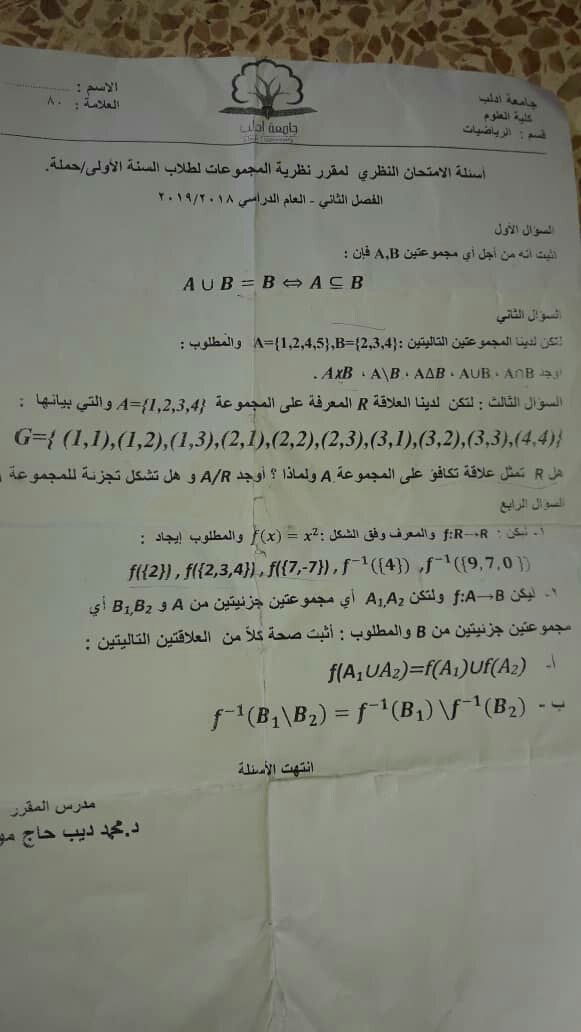 جامعة ادلب
كلية العلوم
قسم : الرياضيات
جامعة إدلب
الاسم : ..............
العلامة : ٨٠
أسئلة الامتحان النظري لمقرر نظرية المجموعات لطلاب السنة الأولى/حملة.
الفصل الثاني - العام الدراسي ٢٠١٩/٢٠١٨
السؤال الأول
اثبت أنه من أجل أي مجموعتين A,B فإن :
A ∪ B = B ⇔ A ⊆ B
السؤال الثاني
لتكن لدينا المجموعتين التاليتين :A={1,2,4,5},B={2,3,4} والمطلوب :
اوجد A∩B ، A∪B ، AΔB ، A\B ، AxB .
السؤال الثالث : لتكن لدينا العلاقة R المعرفة على المجموعة A={1,2,3,4} والتي بيانها :
G={ (1,1),(1,2),(1,3),(2,1),(2,2),(2,3),(3,1),(3,2),(3,3),(4,4)}
هل R تمثل علاقة تكافؤ على المجموعة A ولماذا ؟ أوجد A/R و هل تشكل تجزئة للمجموعة
السؤال الرابع
١- ليكن : f:R→R والمعرف وفق الشكل :f(x) = x² والمطلوب إيجاد :
f({2}) , f({2,3,4}) , f({7,-7}) , f⁻¹({4}) ,f⁻¹({9,7,0 })
٢- ليكن f:A→B ولتكن A₁,A₂ أي مجموعتين جزئيتين من A و B₁,B₂ أي
مجموعتين جزئيتين من B والمطلوب : أثبت صحة كلاً من العلاقتين التاليتين :
أ- f(A₁∪A₂)=f(A₁)∪f(A₂)
ب- f⁻¹(B₁\B₂) = f⁻¹(B₁) \f⁻¹(B₂)
انتهت الأسئلة
مدرس المقرر
د.محمد ديب حاج